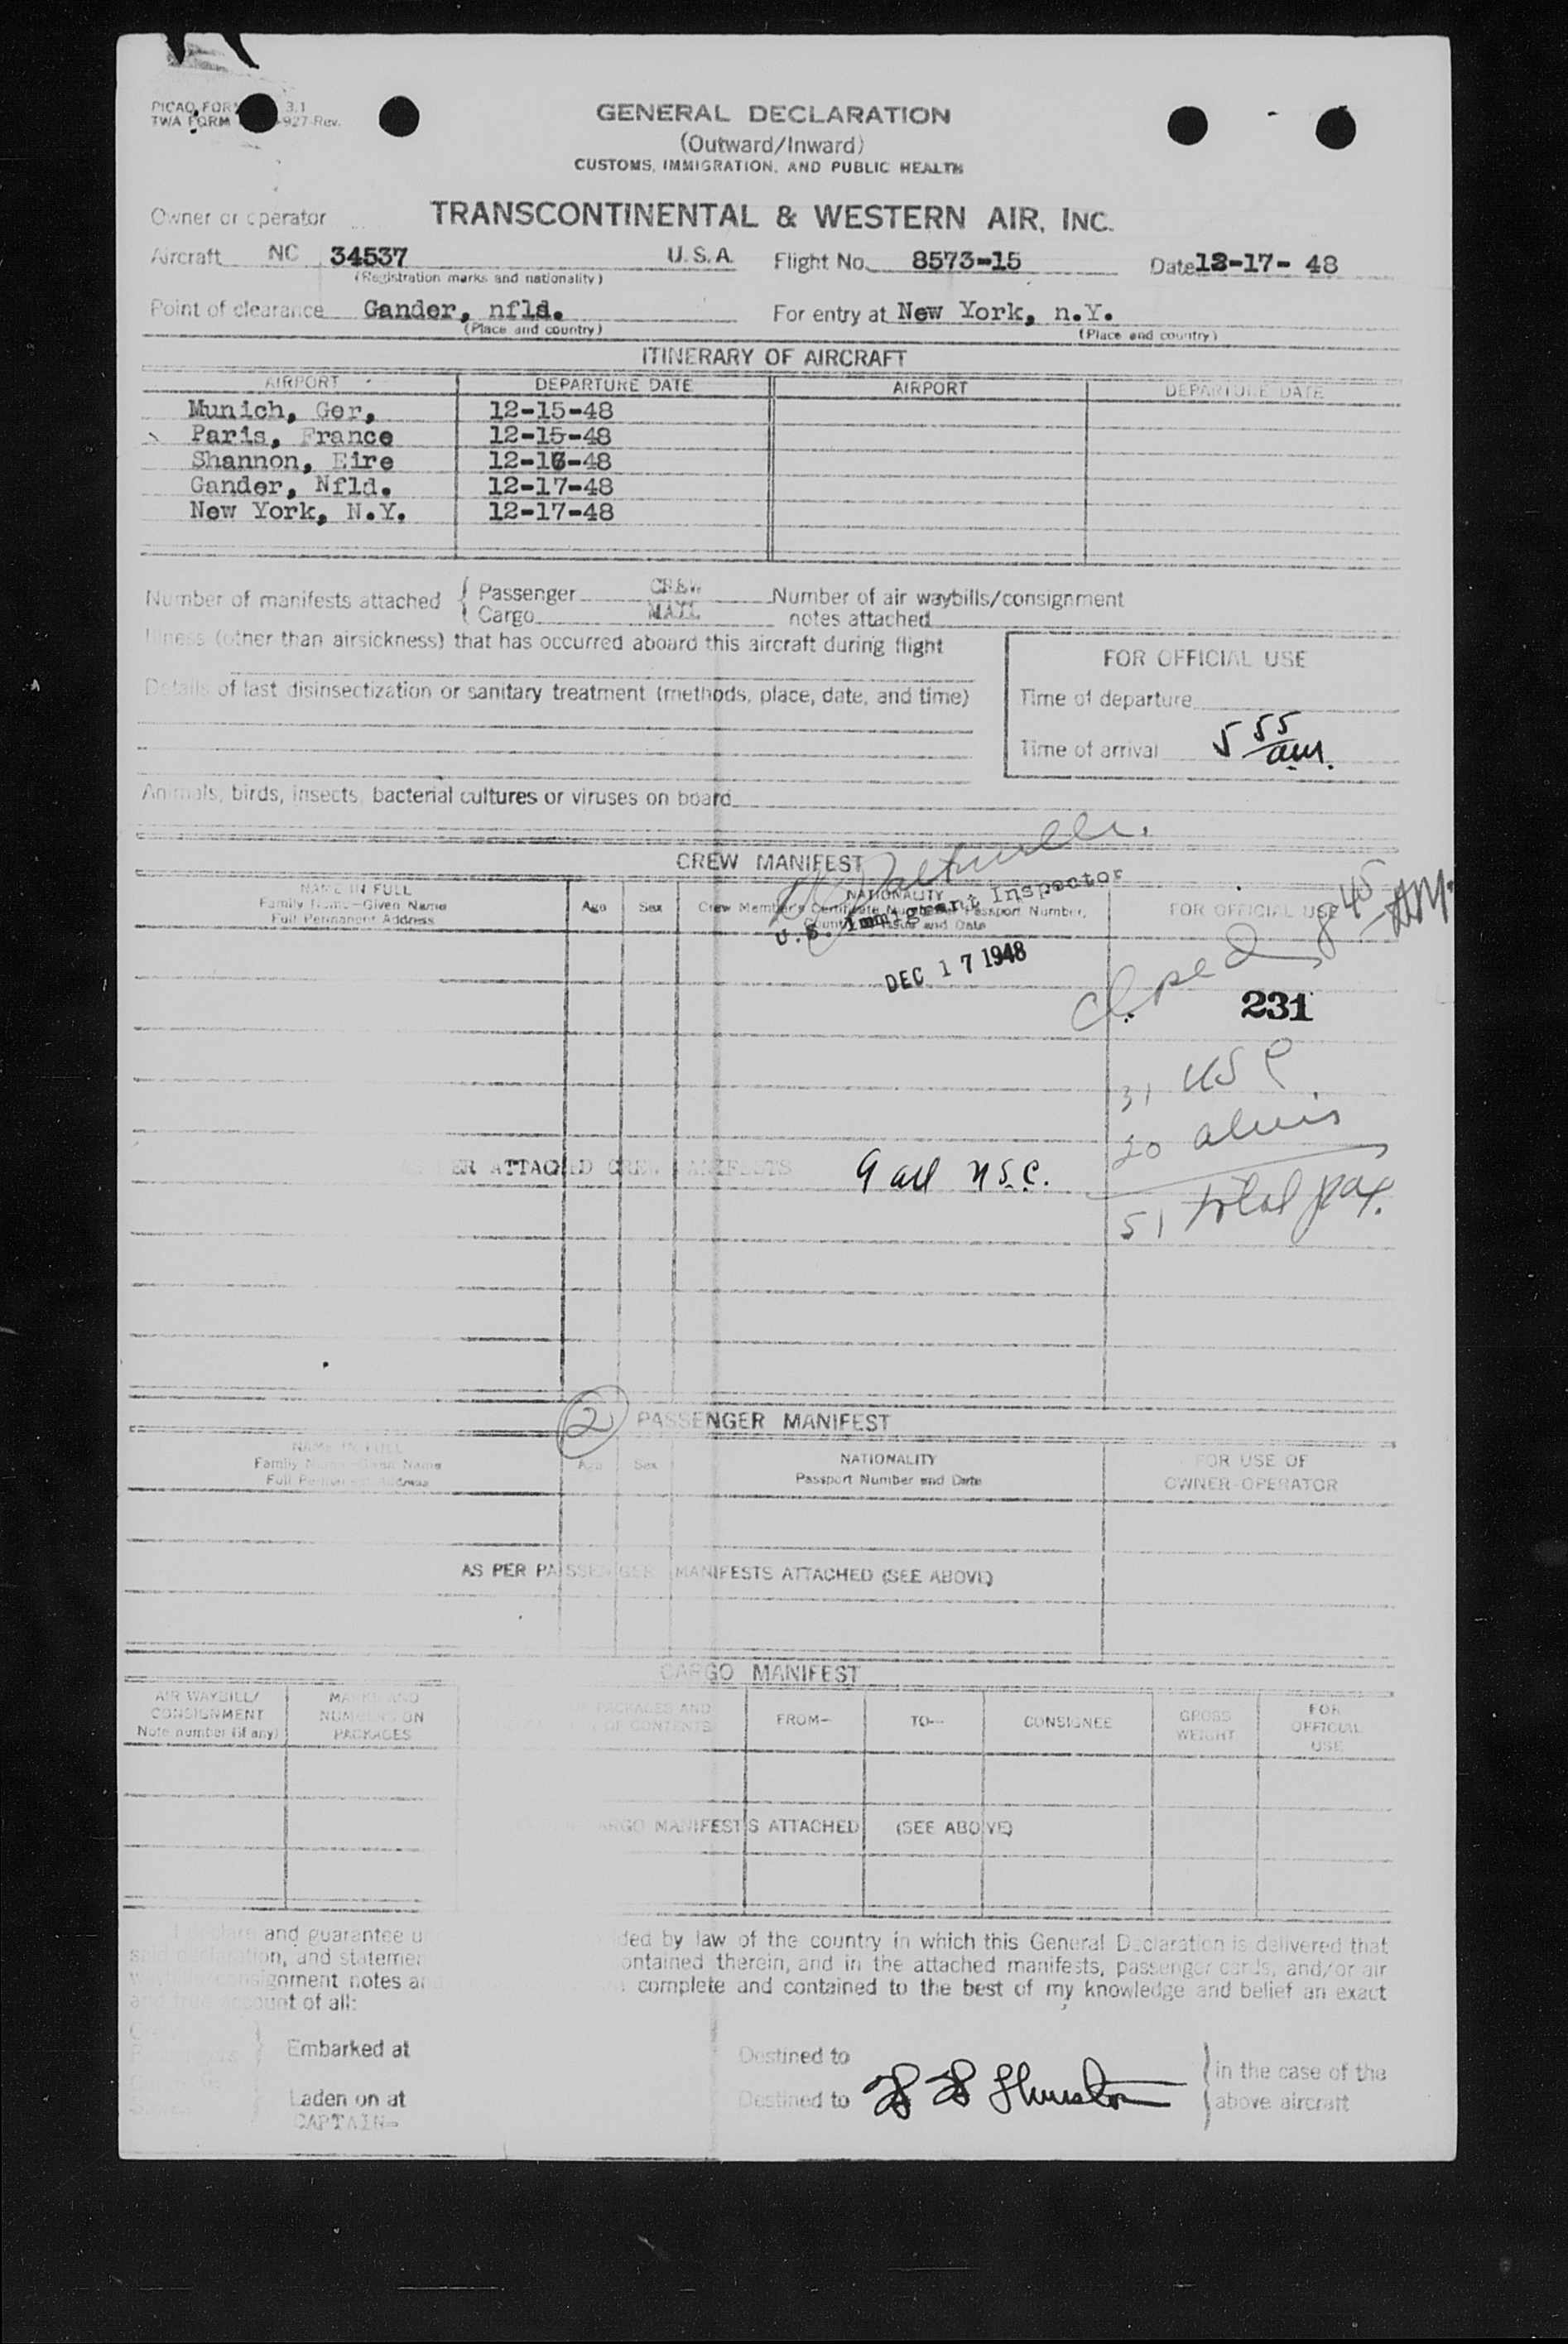 PICAO FOR 3.1
TWA FORM -927-Rev.
GENERAL DECLARATION
(Outward/Inward)
CUSTOMS, IMMIGRATION, AND PUBLIC HEALTH
Owner or operator TRANSCONTINENTAL & WESTERN AIR, INC.
Aircraft NC 34537 U.S.A. Flight No. 8573-15 Date 12-17- 48
(Registration marks and nationality)
Point of clearance Gander, nfld. For entry at New York, n.Y.
(Place and country) (Place and country)
ITINERARY OF AIRCRAFT
AIRPORT DEPARTURE DATE AIRPORT DEPARTURE DATE
Munich, Ger, 12-15-48
Paris, France 12-15-48
Shannon, Eire 12-16-48
Gander, Nfld. 12-17-48
New York, N.Y. 12-17-48
Number of manifests attached { Passenger CREW Number of air waybills/consignment
{ Cargo MAIL notes attached
Illness (other than airsickness) that has occurred aboard this aircraft during flight
FOR OFFICIAL USE
Details of last disinsectization or sanitary treatment (methods, place, date, and time)
Time of departure
Time of arrival 5 55 am.
Animals, birds, insects, bacterial cultures or viruses on board
CREW MANIFEST
NAME IN FULL
Family Name—Given Name
Full Permanent Address
Age Sex
NATIONALITY
Crew Member's Certificate Number or Passport Number,
Country of Issue and Date
FOR OFFICIAL USE
U.S. Immigrant Inspector
DEC 17 1948
8 45 AM.
231
31 USC
20 aliens
51 total pax.
AS PER ATTACHED CREW MANIFESTS 9 all USC.
2 PASSENGER MANIFEST
NAME IN FULL
Family Name—Given Name
Full Permanent Address
Age Sex
NATIONALITY
Passport Number and Date
FOR USE OF
OWNER-OPERATOR
AS PER PASSENGER MANIFESTS ATTACHED (SEE ABOVE)
CARGO MANIFEST
AIR WAYBILL/
CONSIGNMENT
Note number (if any)
MARKS AND
NUMBERS ON
PACKAGES
PACKAGES AND
OF CONTENTS
FROM— TO— CONSIGNEE
GROSS
WEIGHT
FOR
OFFICIAL
USE
CARGO MANIFESTS ATTACHED (SEE ABOVE)
I declare and guarantee u ded by law of the country in which this General Declaration is delivered that
said declaration, and statemen ontained therein, and in the attached manifests, passenger cards, and/or air
waybills/consignment notes an complete and contained to the best of my knowledge and belief an exact
and true account of all:
Embarked at Destined to
in the case of the
Laden on at Destined to above aircraft
CAPTAIN-